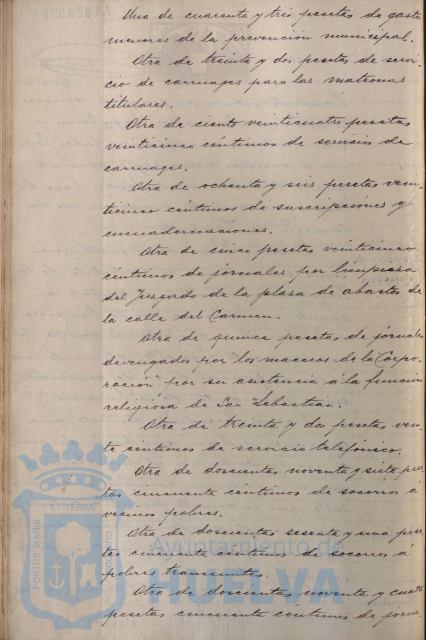 Una de cuarenta y tres pesetas de gastos
menores de la prevención municipal.
Otra de treinta y dos pesetas de servi-
cio de carruages para las matronas
titulares.
Otra de ciento veinticuatro pesetas
veinticinco céntimos de servicios de
carruages.
Otra de ochenta y seis pesetas vein-
ticinco céntimos de suscripciones y
encuadernaciones.
Otra de cinco pesetas veinticinco
céntimos de jornales por limpieza
del Juzgado de la plaza de abastos de
la calle del Carmen.
Otra de quince pesetas de jornales
devengados por los maceros de la Corpo-
ración por su asistencia á la función
religiosa de San Sebastian.
Otra de treinta y dos pesetas vein-
te céntimos de servicio telefónico.
Otra de doscientas noventa y siete pese-
tas cincuenta céntimos de socorros a
vecinos pobres.
Otra de doscientas sesenta y una pese-
tas cincuenta céntimos de socorros á
pobres transeuntes.
Otra de doscientas noventa y cuatro
pesetas cincuenta céntimos de jorna
PORTUS MARIS
ET TERRÆ
Ayuntamiento de
HUELVA